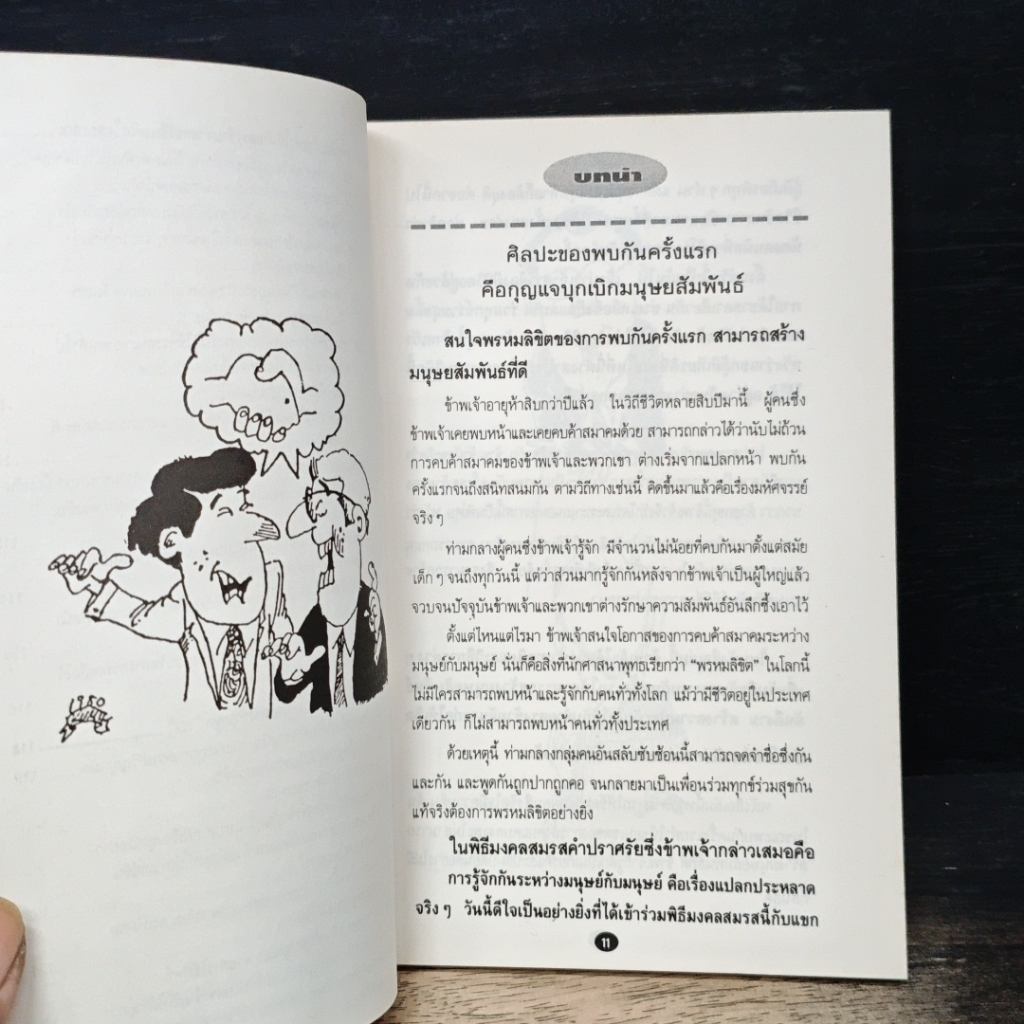 บทนำ
ศิลปะของพบกันครั้งแรก
คือกุญแจบุกเบิกมนุษยสัมพันธ์
สนใจพรหมลิขิตของการพบกันครั้งแรก สามารถสร้าง
มนุษยสัมพันธ์ที่ดี
ข้าพเจ้าอายุห้าสิบกว่าปีแล้ว ในวิถีชีวิตหลายสิบปีมานี้ ผู้คนซึ่ง
ข้าพเจ้าเคยพบหน้าและเคยคบค้าสมาคมด้วย สามารถกล่าวได้ว่านับไม่ถ้วน
การคบค้าสมาคมของข้าพเจ้าและพวกเขา ต่างเริ่มจากแปลกหน้า พบกัน
ครั้งแรกจนถึงสนิทสนมกัน ตามวิถีทางเช่นนี้ คิดขึ้นมาแล้วคือเรื่องมหัศจรรย์
จริง ๆ
ท่ามกลางผู้คนซึ่งข้าพเจ้ารู้จัก มีจำนวนไม่น้อยที่คบกันมาตั้งแต่สมัย
เด็ก ๆ จนถึงทุกวันนี้ แต่ว่าส่วนมากรู้จักกันหลังจากข้าพเจ้าเป็นผู้ใหญ่แล้ว
จวบจนปัจจุบันข้าพเจ้าและพวกเขาต่างรักษาความสัมพันธ์อันลึกซึ้งเอาไว้
ตั้งแต่ไหนแต่ไรมา ข้าพเจ้าสนใจโอกาสของการคบค้าสมาคมระหว่าง
มนุษย์กับมนุษย์ นั่นก็คือสิ่งที่นักศาสนาพุทธเรียกว่า “พรหมลิขิต” ในโลกนี้
ไม่มีใครสามารถพบหน้าและรู้จักกับคนทั่วทั้งโลก แม้ว่ามีชีวิตอยู่ในประเทศ
เดียวกัน ก็ไม่สามารถพบหน้าคนทั่วทั้งประเทศ
ด้วยเหตุนี้ ท่ามกลางกลุ่มคนอันสลับซับซ้อนนี้สามารถจดจำชื่อซึ่งกัน
และกัน และพูดกันถูกปากถูกคอ จนกลายมาเป็นเพื่อนร่วมทุกข์ร่วมสุขกัน
แท้จริงต้องการพรหมลิขิตอย่างยิ่ง
ในพิธีมงคลสมรสคำปราศรัยซึ่งข้าพเจ้ากล่าวเสมอคือ
การรู้จักกันระหว่างมนุษย์กับมนุษย์ คือเรื่องแปลกประหลาด
จริง ๆ วันนี้ดีใจเป็นอย่างยิ่งที่ได้เข้าร่วมพิธีมงคลสมรสนี้กับแขก
11